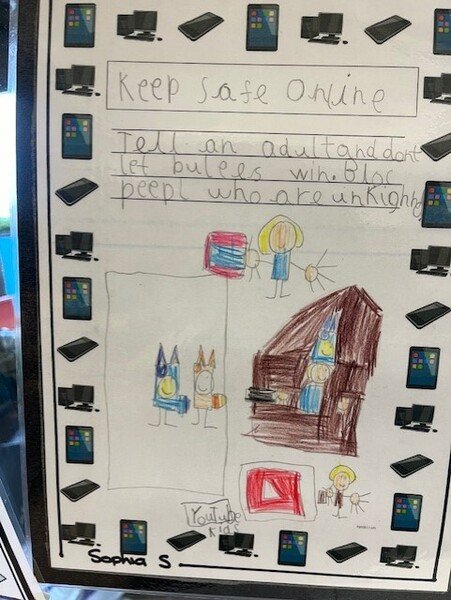 Keep Safe Online
Tell an adult and dont
let bulees win. Bloc
peepl who are unKighnd
YouTube
Kids
Sophia S